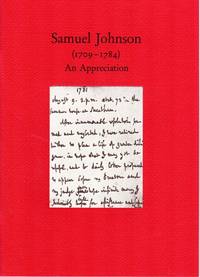 Samuel Johnson
(1709–1784)
An Appreciation
1781
August 9. 3 p.m. aetat. 72 in the
summer house at Streatham.
After innumerable resolutions for
med and neglected, I have retired
hither to plan a life of greater dili
gence, in hope that I may yet be
useful, and be daily better prepared
to appear before my Creator and
my Judge infinite mercy I
humbly call for assistance and